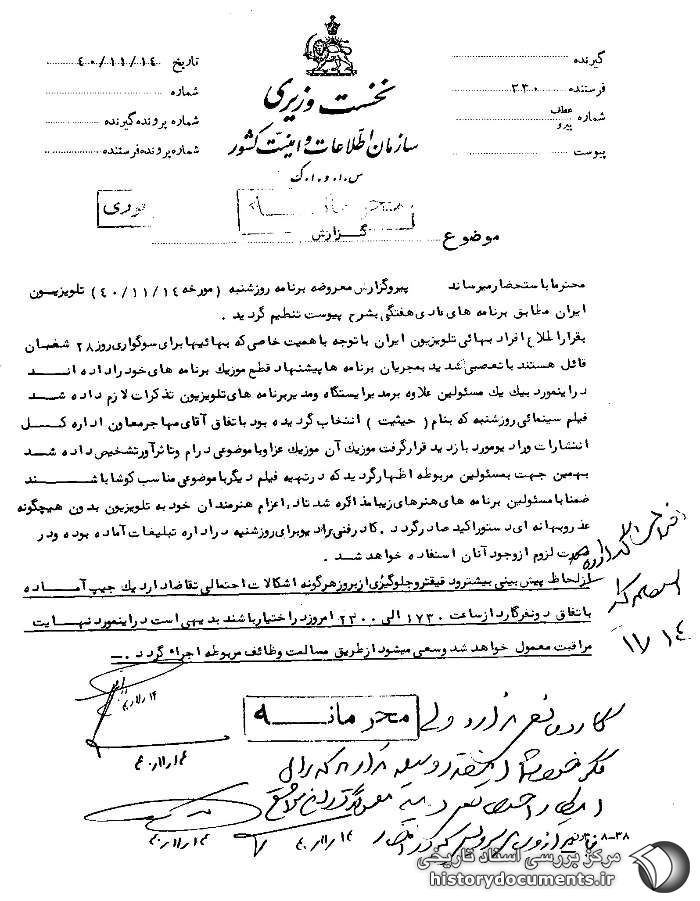 نخست وزیری
سازمان اطلاعات و امنیت کشور
س.ا.و.ا.ک
گیرنده
فرستنده ۳۳۰
شماره عطف پیرو
پیوست
تاریخ ۴۰/۱۱/۱۴
شماره
شماره پرونده گیرنده
شماره پرونده فرستنده
محرمانه
فوری
موضوع گزارش
محترما باستحضار میرساند پیرو گزارش معروضه برنامه روزشنبه (مورخه ۴۰/۱۱/۱۴) تلویزیون
ایران مطابق برنامه های عادی هفتگی بشرح پیوست تنظیم گردید .
بقرار اطلاع افراد بهائی تلویزیون ایران با توجه با همیت خاصی که بهائیها برای سوگواری روز ۲۸ شعبان
قائل هستند با تعصبی شدید بمجریان برنامه ها پیشنهاد قطع موزیک برنامه های خود را داده اند
در اینمورد بیک یک مسئولین علاوه بر مدیر ایستگاه و مدیر برنامه های تلویزیون تذکرات لازم داده شد
فیلم سینمائی روزشنبه که بنام ( حیثیت ) انتخاب گردیده بود باتفاق آقای مهاجر معاون اداره کل
انتشارات و رادیو مورد بازدید قرار گرفت موزیک آن موزیک عزا و با موضوعی درام و تاثرآور تشخیص داده شد
بهمین جهت بمسئولین مربوطه اظهار گردید که در تهیه فیلم دیگر با موضوعی مناسب کوشا باشند
ضمنا با مسئولین برنامه های هنرهای زیبا مذاکره شد تا در اعزام هنرمندان خود به تلویزیون بدون هیچگونه
عذر و بهانه ای دستور اکید صادر گردد . کادر فنی رادیو برای روزشنبه در اداره تبلیغات آماده بوده و در
صورت لزوم از وجود آنان استفاده خواهد شد .
از لحاظ پیش بینی بیشتر و دقیقتر و جلوگیری از بروز هرگونه اشکالات احتمالی تقاضا دارد یک جیپ آماده
باتفاق دو نفر گارد از ساعت ۱۷۳۰ الی ۲۳۰۰ امروز در اختیار باشند بدیهی است در اینمورد نهایت
مراقبت معمول خواهد شد و سعی میشود از طریق مسالمت وظائف مربوطه اجراء گردد .
۱۱/۱۴
محرمانه
۴۰/۱۱/۱۴
۴۰/۱۱/۱۴
۴۰/۱۱/۱۴
۴۰/۱۱/۱۴
۸-۳۸
مرکز بررسی اسناد تاریخی
historydocuments.ir